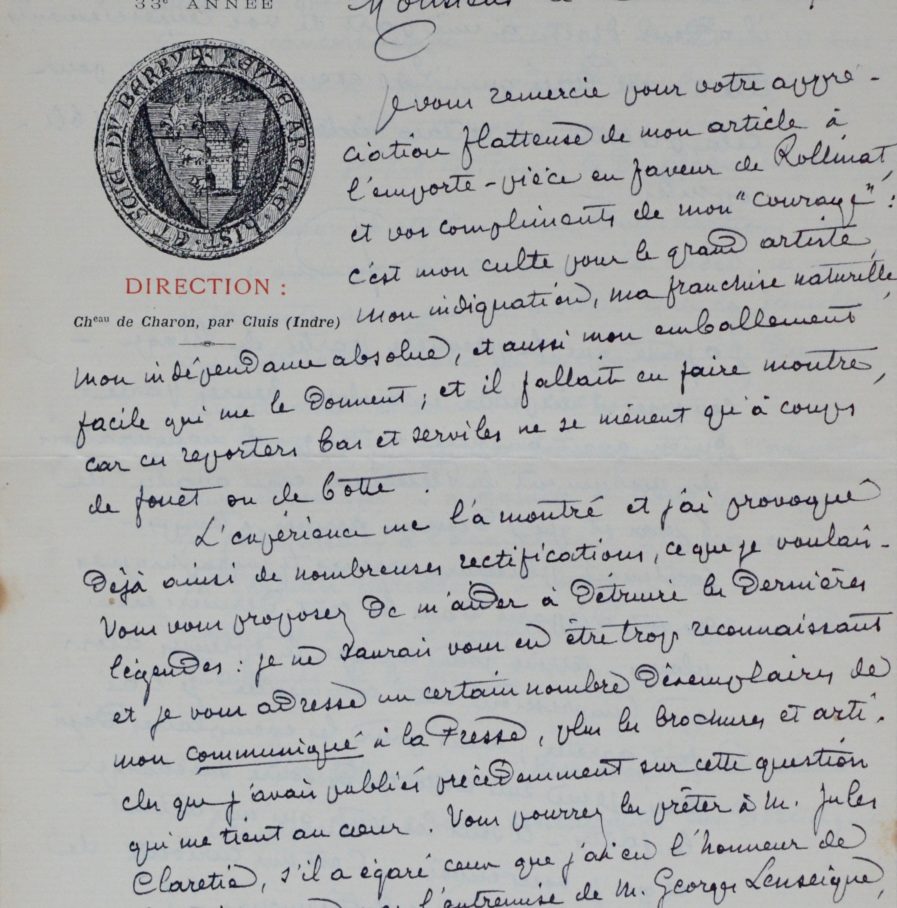 33e ANNÉE
Monsieur
REVVE ARCHE HIST ET SCIE DV BERRY
Je vous remercie pour votre appré-
ciation flatteuse de mon article à
l'emporte-pièce en faveur de Rollinat,
et vos compliments de mon "courage" :
c'est mon culte pour le grand artiste,
DIRECTION :
Cheau de Charon, par Cluis (Indre)
mon indignation, ma franchise naturelle,
mon indépendance absolue, et aussi mon emballement
facile qui me le donnent ; et il fallait en faire montre,
car ces reporters bas et serviles ne se mènent qu'à coups
de fouet ou de botte.
L'expérience me l'a montré et j'ai provoqué
déjà ainsi de nombreuses rectifications, ce que je voulais.
Vous vous proposez de m'aider à détruire les dernières
légendes : je ne saurais vous en être trop reconnaissant
et je vous adresse un certain nombre d'exemplaires de
mon communiqué à la Presse, plus les brochures et arti-
cles que j'avais publiés précédemment sur cette question
qui me tient au cœur. Vous pourrez les prêter à M. Jules
Claretie, s'il a égaré ceux que j'ai eu l'honneur de
l'entremise de M. Georges Lenseigne,